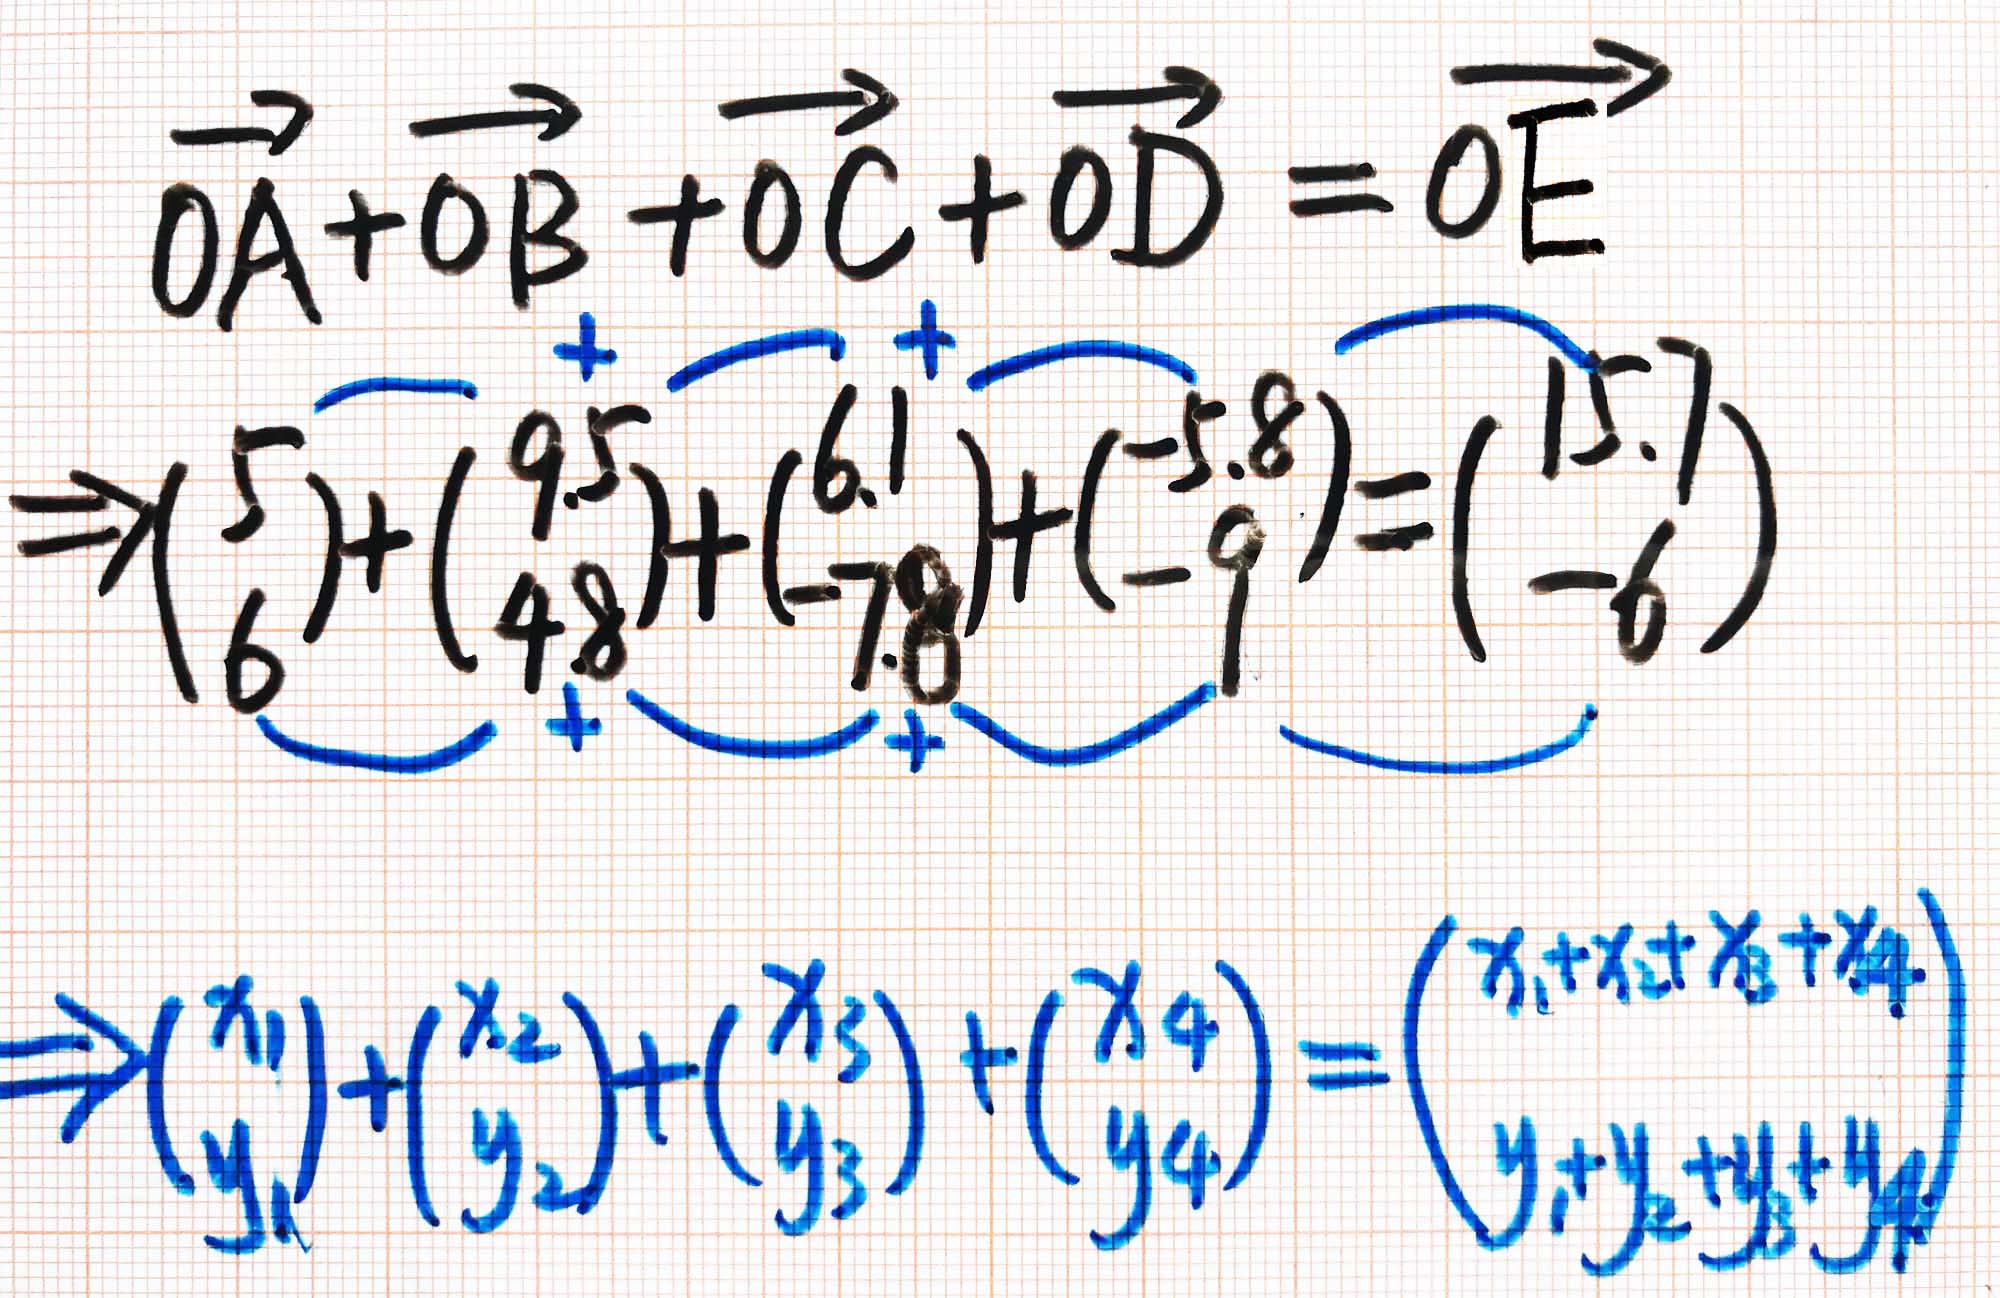 → → → → →
OA + OB + OC + OD = OE
+ +
⇒ (5 6) + (9.5 4.8) + (6.1 -7.8) + (-5.8 -9) = (15.7 -6)
+ +
⇒ (x₁ y₁) + (x₂ y₂) + (x₃ y₃) + (x₄ y₄) = (x₁+x₂+x₃+x₄ y₁+y₂+y₃+y₄)